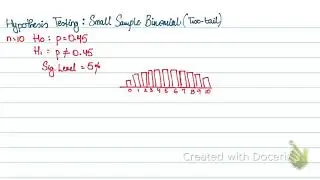 Hypothesis Testing: Small Sample Binomial (Two-tail)
n=10 H₀: p=0.45
H₁: p≠0.45
Sig Level = 5%
0 1 2 3 4 5 6 7 8 9 10
Created with Doceri